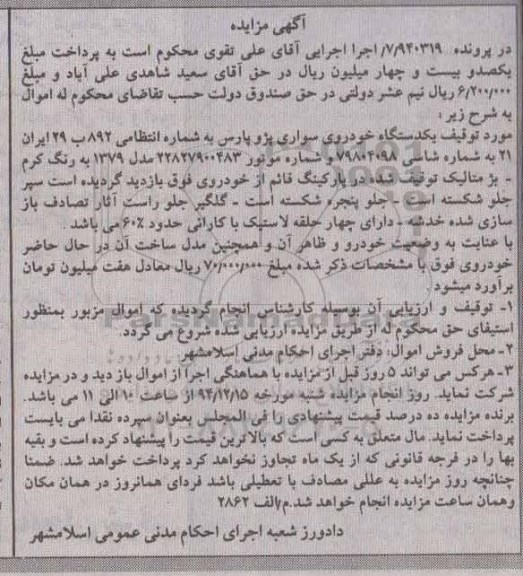 آگهی مزایده
در پرونده ۷/۹۴۰۳۱۹/ اجرا اجرایی آقای علی تقوی محکوم است به پرداخت مبلغ
یکصدو بیست و چهار میلیون ریال در حق آقای سعید شاهدی علی آباد و مبلغ
۶/۲۰۰/۰۰۰ ریال نیم عشر دولتی در حق صندوق دولت حسب تقاضای محکوم له اموال
به شرح زیر :
مورد توقیف یکدستگاه خودروی سواری پژو پارس به شماره انتظامی ۸۹۲ ب ۲۹ ایران
۲۱ به شماره شاسی ۷۹۸۰۴۰۹۸ و شماره موتور ۲۲۸۲۷۹۰۰۴۸۳ مدل ۱۳۷۹ به رنگ کرم
- بژ متالیک توقیف شده در پارکینگ قائم از خودروی فوق بازدید گردیده است سپر
جلو شکسته است - جلو پنجره شکسته است - گلگیر جلو راست آثار تصادف باز
سازی شده خدشه - دارای چهار حلقه لاستیک با کارائی حدود ۶۰٪ می باشد .
با عنایت به وضعیت خودرو و ظاهر آن و همچنین مدل ساخت آن در حال حاضر
خودروی فوق با مشخصات ذکر شده مبلغ ۷۰/۰۰۰/۰۰۰ ریال معادل هفت میلیون تومان
برآورد میشود .
۱- توقیف و ارزیابی آن بوسیله کارشناس انجام گردیده که اموال مزبور بمنظور
استیفای حق محکوم له از طریق مزایده ارزیابی شده شروع می گردد.
۲- محل فروش اموال: دفتر اجرای احکام مدنی اسلامشهر
۳- هرکس می تواند ۵ روز قبل از مزایده با هماهنگی اجرا از اموال باز دید و در مزایده
شرکت نماید. روز انجام مزایده شنبه مورخه ۹۴/۱۲/۱۵ از ساعت ۱۰ الی ۱۱ می باشد.
برنده مزایده ده درصد قیمت پیشنهادی را فی المجلس بعنوان سپرده نقدا می بایست
پرداخت نماید. مال متعلق به کسی است که بالاترین قیمت را پیشنهاد کرده است و بقیه
بها را در فرجه قانونی که از یک ماه تجاوز نخواهد کرد پرداخت خواهد شد. ضمنا
چنانچه روز مزایده به عللی مصادف با تعطیلی باشد فردای همانروز در همان مکان
وهمان ساعت مزایده انجام خواهد شد.م/الف ۲۸۶۲
دادورز شعبه اجرای احکام مدنی عمومی اسلامشهر